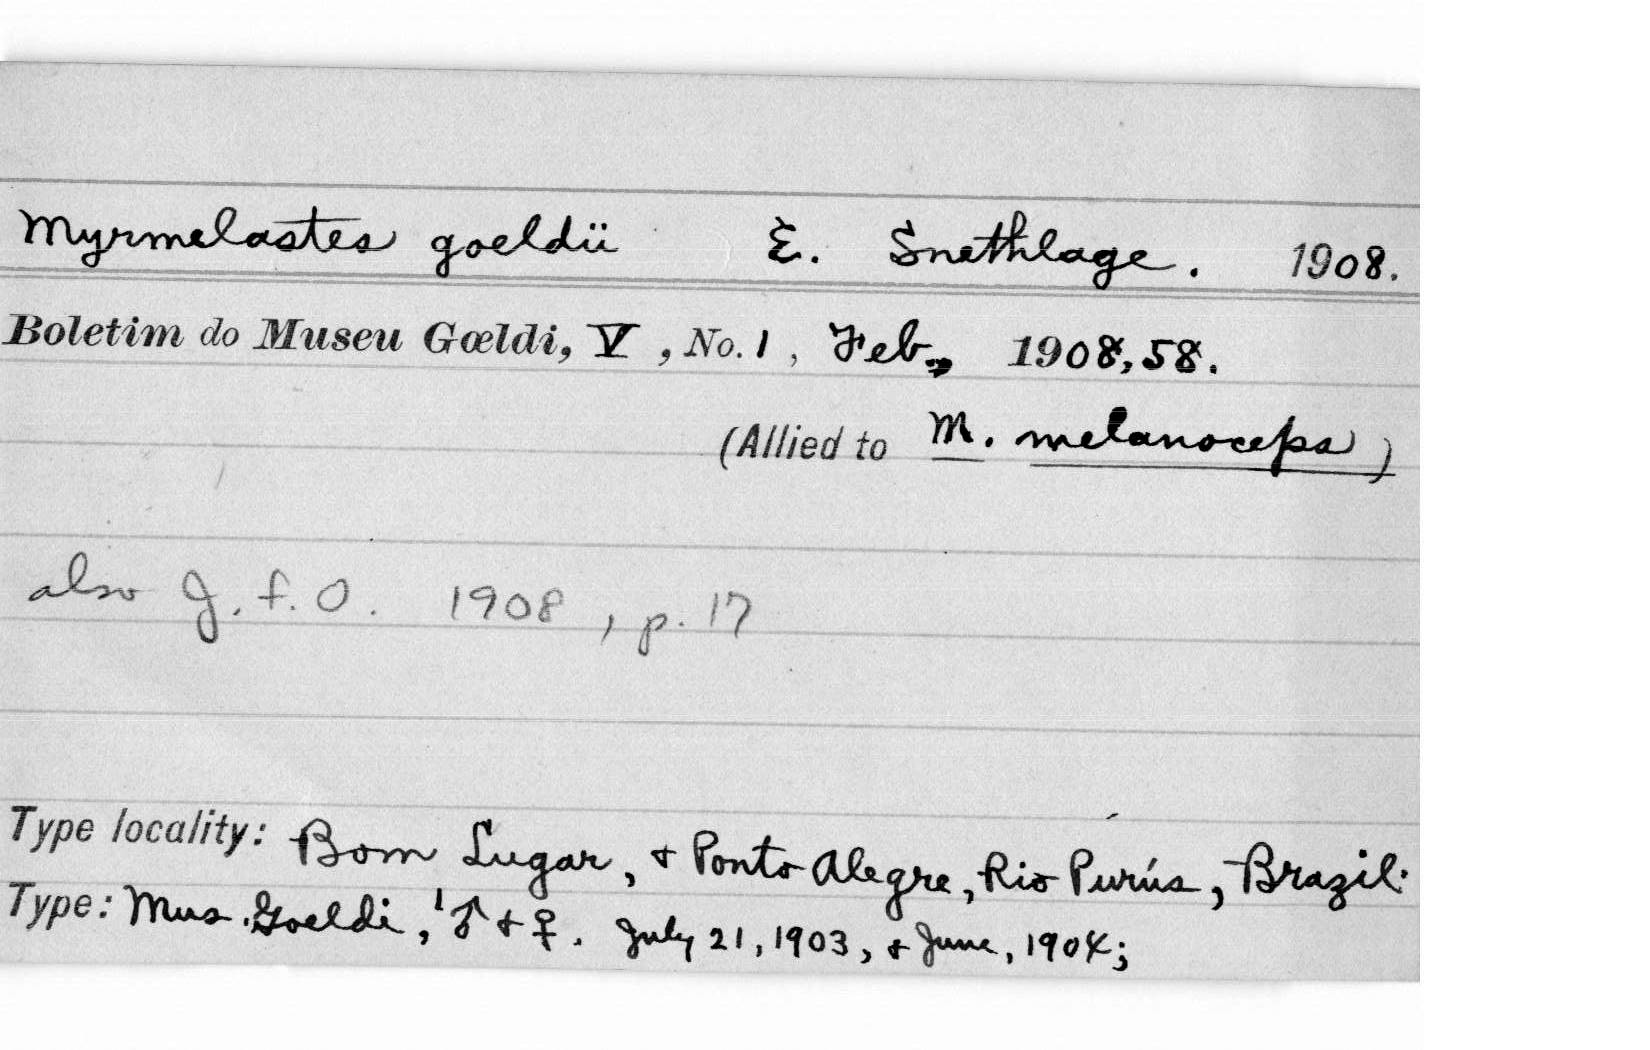 Myrmelastes goeldii E. Snethlage. 1908.
Boletim do Museu Gœldi, V, No. 1, Feb., 1908, 58.
(Allied to M. melanoceps)
also J. f. O. 1908, p. 17
Type locality: Bom Lugar, + Ponto Alegre, Rio Purús, Brazil.
Type: Mus. Goeldi, ♂ + ♀. July 21, 1903, + June, 1904;